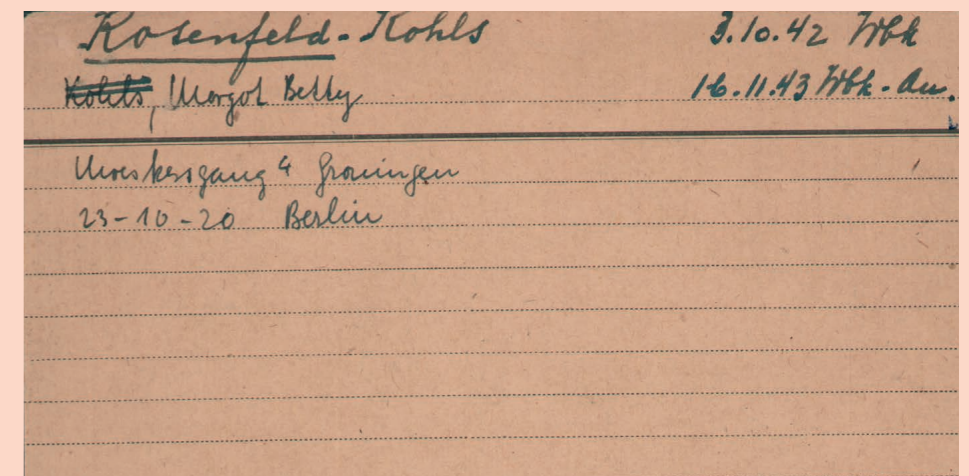 Rosenfeld-Kohls 3.10.42 Wbk
Kohls, Margot Betty 16.11.43 Wbk-Au.
4 Groningen
23-10-20 Berlin